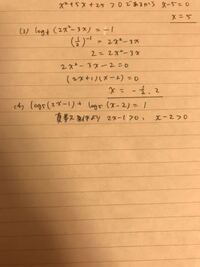 x²+5x+25 > 0 であるから x-5=0
x=5
(3) log½ (2x²-3x) = -1
(½)⁻¹ = 2x²-3x
2 = 2x²-3x
2x²-3x-2=0
(2x+1)(x-2)=0
x = -½, 2
(4) log5(2x-1) + log5 (x-2) = 1
真数条件より 2x-1>0, x-2>0